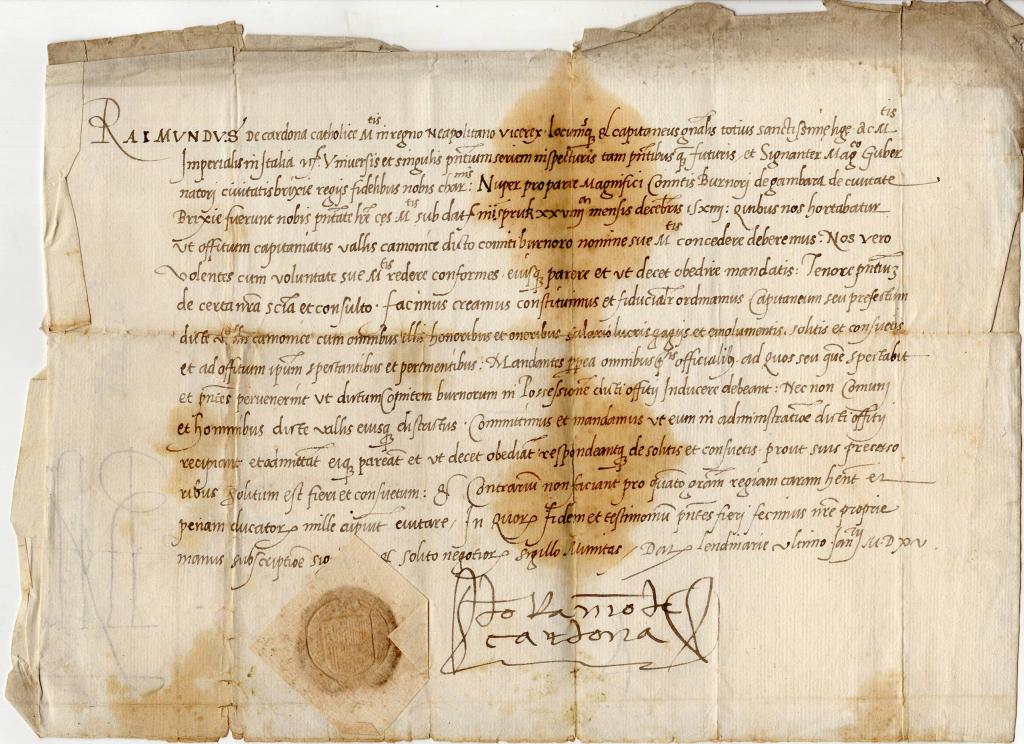 RAIMUNDUS De cardona catholice Mtis in regno Neapolitano vicerex locumq & capitaneus gnalis totius sanctissime lige ac Mtis
Imperialis in Italia Universis et singulis pntium seriem inspecturis tam pntibus q futuris et Signanter Mago Guber
natori civitatis brixie regijs fidelibus nobis charmis: Nuper pro parte Magnifici Comitis Burnori de gambara de civitate
Brixie fuerunt nobis pntate Mtis sub dat mensis decebris: quibus nos hortabatur
ut offitium capitaniatus vallis camonice dicto comiti burnoro nomine sue Mtis concedere deberemus: Nos vero
volentes cum voluntate sue Mtis redere conformes eiusq parere et ut decet obedire mandatis: Tenore pntium
de certa nra scia et consulto facimus creamus constituimus et fiducialr ordinamus Capitaneum seu prefectum
dicte camonice cum omnibus illis honoribus et oneribus salario lucris gagijs et emolumentis solitis et consuetis
et ad offitium ipsum spectantibus et pertinentibus: Mandantes ppea omnibus officialib ad quos seu que spectabit
et pntes pervenerint ut dictum Comitem burnorum in Possessione dicti offitij Inducere debeant: Nec non Comuni
et hominibus dicte vallis eiusq districtus Committimus et mandamus ut eum in administratioe dicti offitij
recipiant et admittat eiq pareant et ut decet obediat respondeantq de solitis et consuetis prout suis precesso
ribus solitum est fieri et consuetum: & Contrarium non faciant pro quato gratiam regiam caram hent et
penam ducator mille cupiut evitare, In quor fidem et testimonium pntes fieri fecimus nre proprie
manus subscriptioe & solito negotior sigillo Munitas, Dat Lendinarie ultimo Janrij MDXV
Don Ramo de
cardona